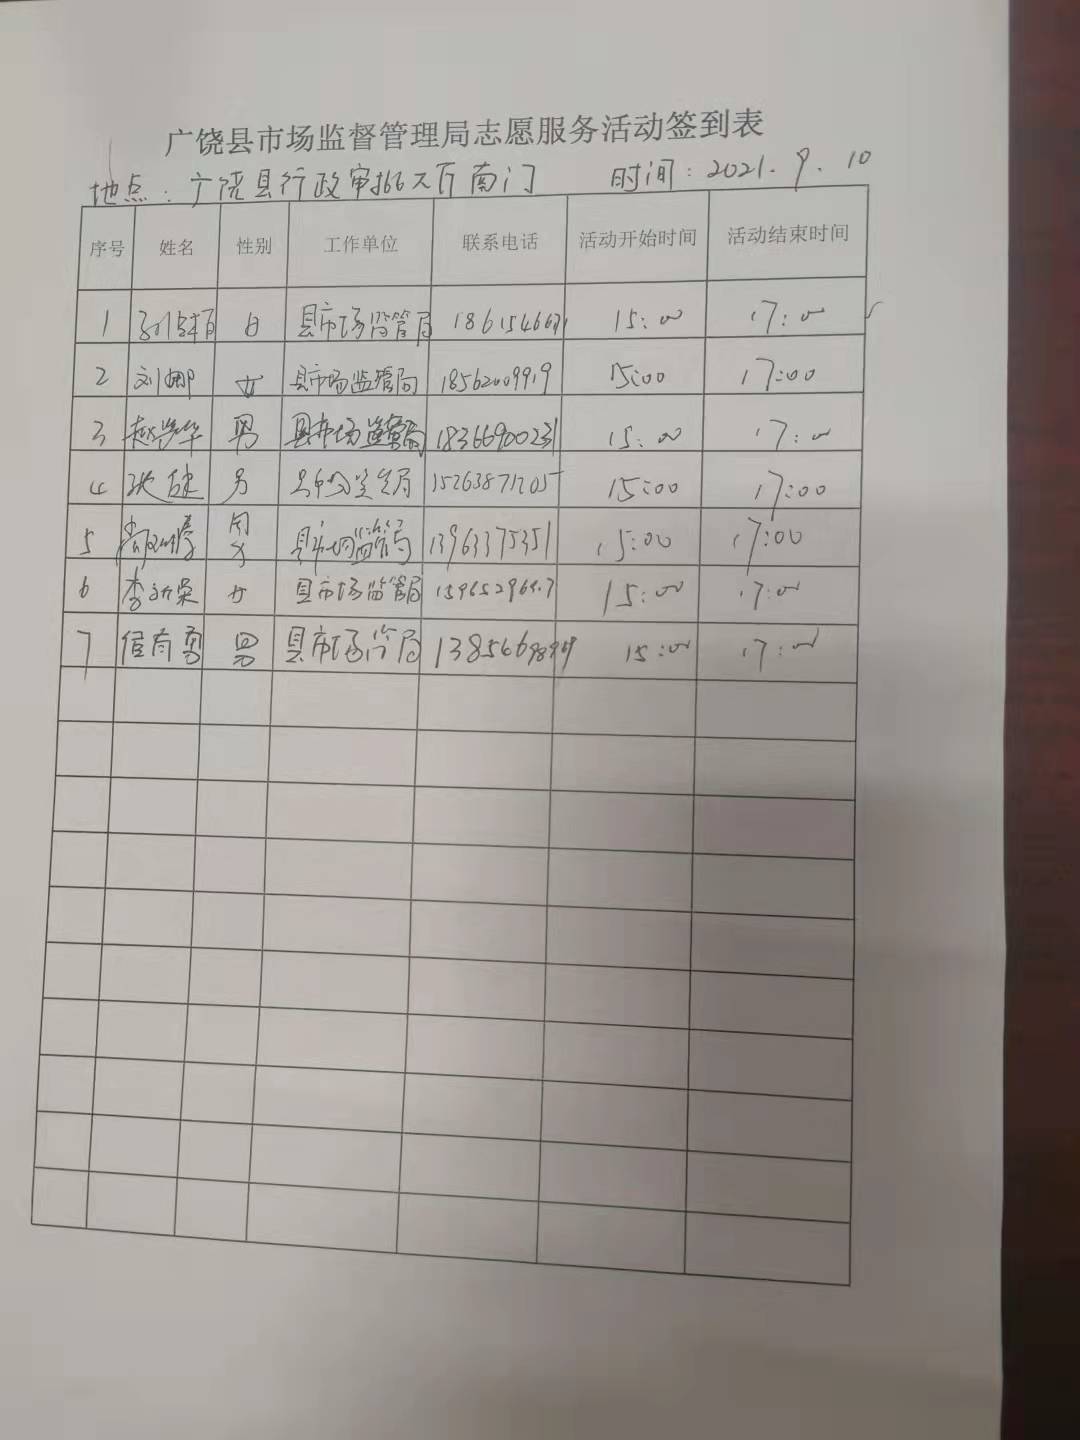 广饶县市场监督管理局志愿服务活动签到表
地点：广饶县行政审批大厅南门 时间：2021.9.10
序号 姓名 性别 工作单位 联系电话 活动开始时间 活动结束时间
1 县市场监管局 15:00 17:00
2 刘娜 女 县市场监管局 18562009919 15:00 17:00
3 男 县市场监管局 18366900231 15:00 17:00
4 张健 男 县市场监管局 15263871205 15:00 17:00
5 男 县市场监管局 13963375351 15:00 17:00
6 女 县市场监管局 15:00 17:00
7 男 县市场监管局 15:00 17:00